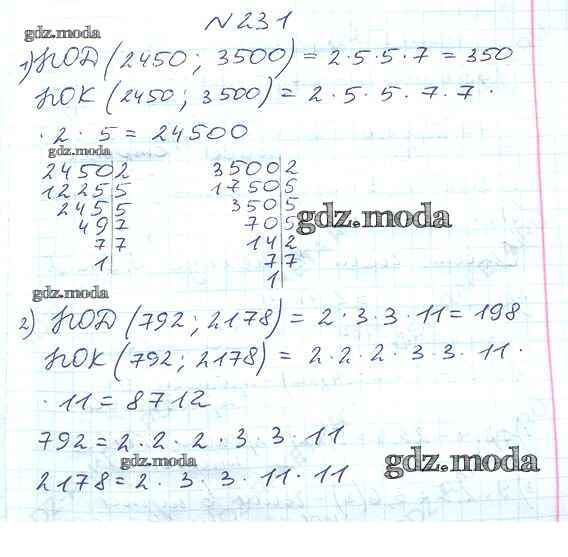 N 231
gdz.moda
1) НОД (2450; 3500) = 2·5·5·7 = 350
НОК (2450; 3500) = 2·5·5·7·7·
·2·5 = 24500
gdz.moda
2450|2 3500|2
1225|5 1750|5
245|5 350|5
49|7 70|5
7|7 14|2
1| 7|7
1|
gdz.moda
gdz.moda
2) НОД (792; 2178) = 2·3·3·11 = 198
НОК (792; 2178) = 2·2·2·3·3·11·
·11 = 8712
792 = 2·2·2·3·3·11
gdz.moda
gdz.moda
2178 = 2·3·3·11·11